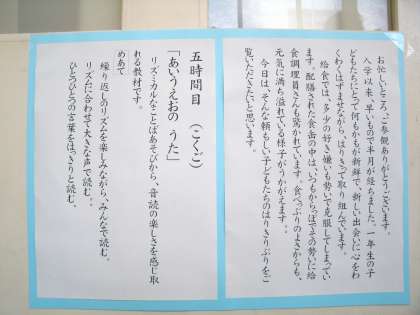 お忙しいところ、ご参観ありがとうございます。
入学以来、早いもので半月が経ちました。一年生の子
どもたちにとって何もかもが新鮮で、新しい出会いに心をわ
くわくはずませながら、はりきって取り組んでいます。
給食では、多少の好き嫌いも勢いで克服してしまってい
ます。配膳された食缶の中は、いつもからっぽでその勢いに給
食調理員さんも驚かれています。食べっぷりのよさからも、
元気に満ち溢れている様子がうかがえます。
今日は、そんな頼もしい子どもたちのはりきりぶりをご
覧いただきたいと思います。
五時間目 （こくご）
「あいうえおの うた」
リズミカルなことばあそびから、音読の楽しさを感じ取
れる教材です。
めあて
繰り返しのリズムを楽しみながら、みんなで読む。
リズムに合わせて大きな声で読む。
ひとつひとつの言葉をはっきりと読む。